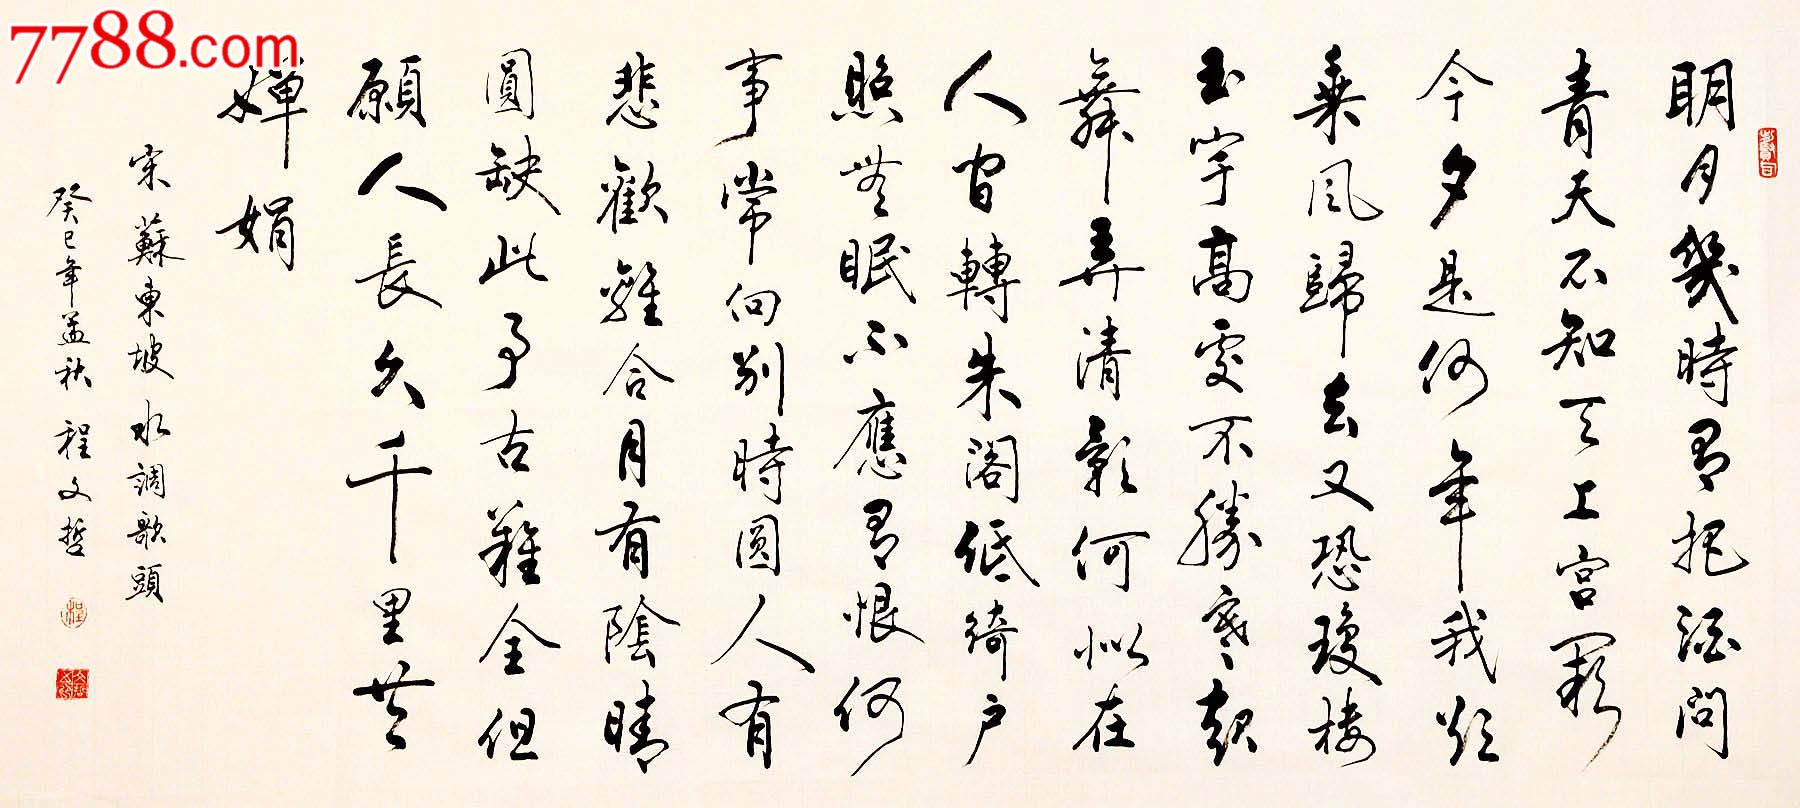 7788.com
明月幾時有把酒問
青天不知天上宮闕
今夕是何年我欲
乘風歸去又恐瓊樓
玉宇高處不勝寒起
舞弄清影何似在
人間轉朱閣低綺户
照無眠不應有恨何
事常向別時圓人有
悲歡離合月有陰晴
圓缺此事古難全但
願人長久千里共
嬋娟
宋蘇東坡水調歌頭
癸巳年孟秋程文哲
程